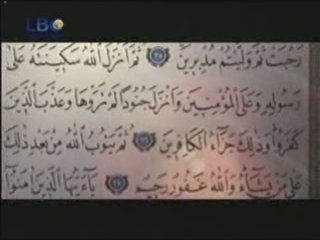 LBC
رَحُبَتْ ثُمَّ وَلَّيْتُم مُّدْبِرِينَ ۝ ثُمَّ أَنزَلَ اللَّهُ سَكِينَتَهُ عَلَىٰ
رَسُولِهِ وَعَلَى الْمُؤْمِنِينَ وَأَنزَلَ جُنُودًا لَّمْ تَرَوْهَا وَعَذَّبَ الَّذِينَ
كَفَرُوا وَذَٰلِكَ جَزَاءُ الْكَافِرِينَ ۝ ثُمَّ يَتُوبُ اللَّهُ مِن بَعْدِ ذَٰلِكَ
عَلَىٰ مَن يَشَاءُ وَاللَّهُ غَفُورٌ رَّحِيمٌ ۝ يَا أَيُّهَا الَّذِينَ آمَنُوا